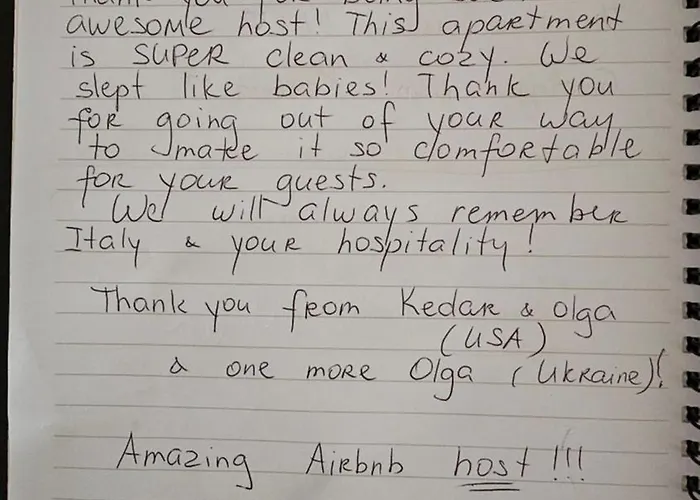 Thank you for being
awesome host! This apartment
is SUPER clean & cozy. We
slept like babies! Thank you
for going out of your way
to make it so comfortable
for your guests.
We will always remember
Italy & your hospitality!
Thank you from Kedar & Olga
(USA)
& one more Olga (Ukraine)!
Amazing Airbnb host!!!